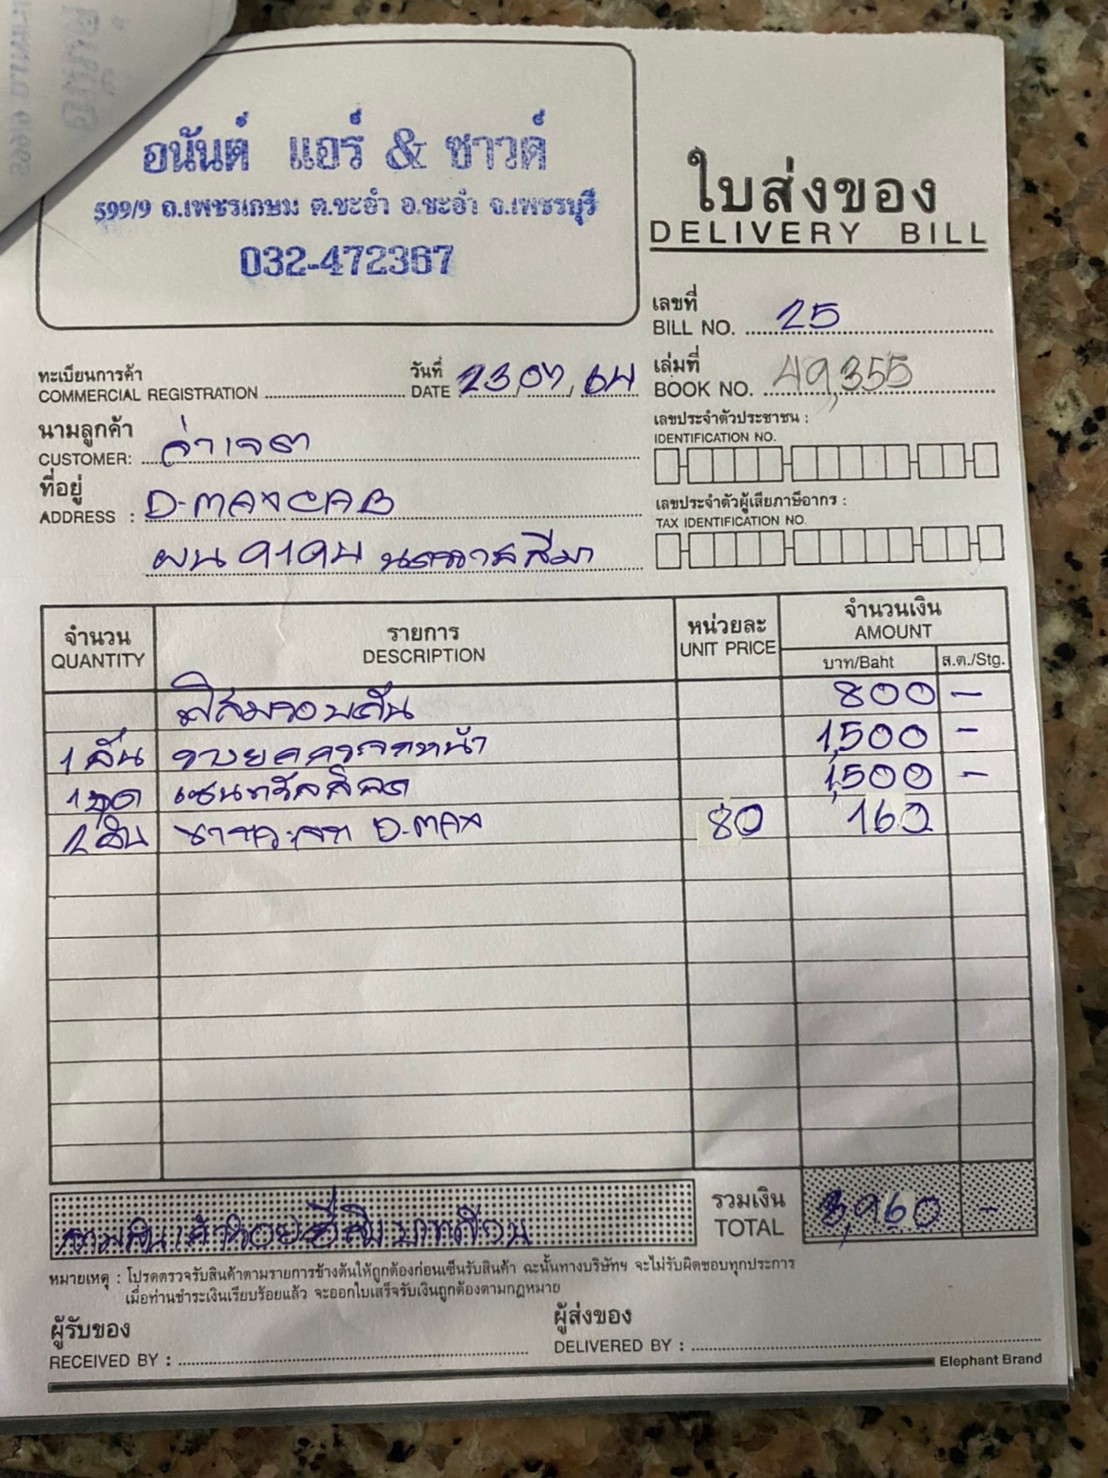 อนันต์ แอร์ & ซาวด์
599/9 ถ.เพชรเกษม ต.ชะอำ อ.ชะอำ จ.เพชรบุรี
032-472367
ใบส่งของ
DELIVERY BILL
เลขที่
BILL NO. 25
ทะเบียนการค้า
COMMERCIAL REGISTRATION
วันที่
DATE 23/07/64
เล่มที่
BOOK NO. 49,355
นามลูกค้า
CUSTOMER:
เลขประจำตัวประชาชน :
IDENTIFICATION NO.
ที่อยู่
ADDRESS : D-MAX CAB
เลขประจำตัวผู้เสียภาษีอากร :
TAX IDENTIFICATION NO.
นครราชสีมา
จำนวน รายการ หน่วยละ จำนวนเงิน
QUANTITY DESCRIPTION UNIT PRICE AMOUNT
บาท/Baht ส.ต./Stg.
ฟิล์มรอบคัน 800 -
1 อัน 1,500 -
1 ชุด เซนทรัลล็อค 1,500 -
2 อัน D-MAX 80 160
รวมเงิน
TOTAL 3,960 -
สามพันเก้าร้อยหกสิบบาทถ้วน
หมายเหตุ : โปรดตรวจรับสินค้าตามรายการข้างต้นให้ถูกต้องก่อนเซ็นรับสินค้า ฉะนั้นทางบริษัทฯ จะไม่รับผิดชอบทุกประการ
เมื่อท่านชำระเงินเรียบร้อยแล้ว จะออกใบเสร็จรับเงินถูกต้องตามกฎหมาย
ผู้รับของ
RECEIVED BY :
ผู้ส่งของ
DELIVERED BY :
Elephant Brand